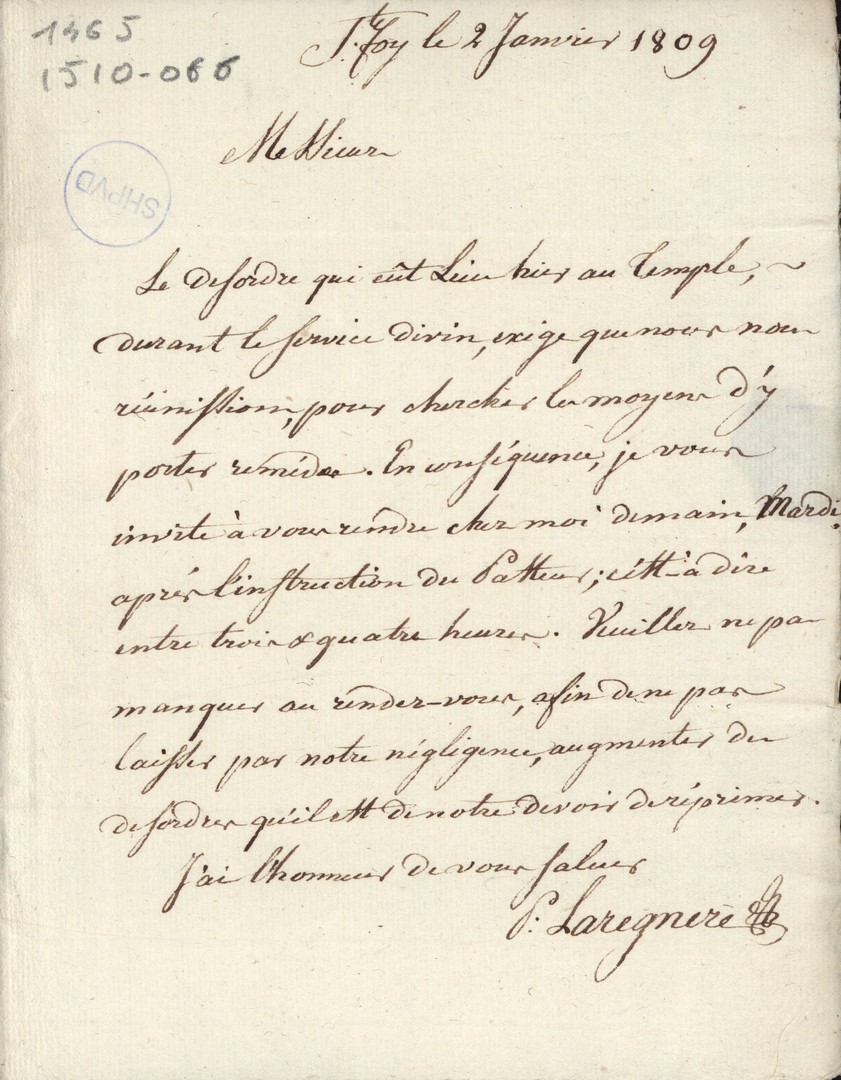 1465
1510-066
Ste. Foy le 2 Janvier 1809
SHPVD
Messieurs
Le desordre qui eût Lieu hier au Temple,
durant le service divin, exige que nous nous
réünissions, pour chercher les moyens d'y
porter remédes. En conséquence, je vous
invite à vous rendre chez moi demain, Mardi,
après l'instruction du Pasteur; c'est-à dire
entre trois & quatre heures. Veuillez ne pas
manquer au rendez-vous, afin de ne pas
laisser par notre négligence, augmenter des
desordres qu'il est de notre devoir de réprimer.
J'ai l'honneur de vous saluer
P: Laregnere